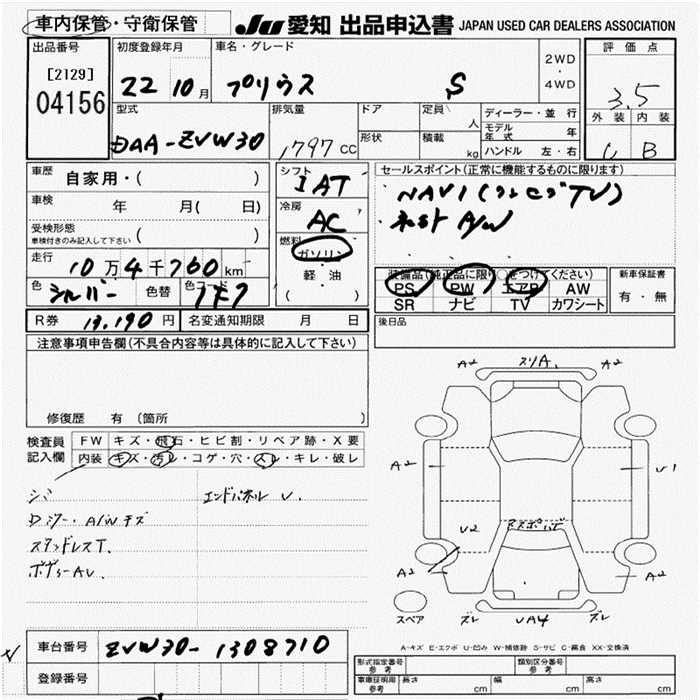 車内保管・守衛保管
JU 愛知 出品申込書 JAPAN USED CAR DEALERS ASSOCIATION
出品番号
[2129]
04156
初度登録年月
22 10月
車名・グレード
プリウス S
2WD
・
4WD
評価点
3.5
外装 内装
B
型式
DAA-ZVW30
排気量
1797 CC
ドア
形状
定員
人
積載
kg
ディーラー・並行
モデル年式 年
ハンドル 左・右
車歴
自家用・( )
車検 年 月( 日)
受検形態
車検付きのみ記入して下さい ( )
走行
10万4千760km
色 シルバー 色替 色コード 1F7
シフト
IAT
冷房
AC
燃料
ガソリン
・
軽・油
( )
セールスポイント(正常に機能するものに限ります)
NAVI(フルセグTV)
ネst A/W
装備品(純正品に限り○をつけてください)
PS PW エアB AW
SR ナビ TV カワシート
新車保証書
有・無
後日品
R券 13,190円 名変通知期限 月 日
注意事項申告欄(不具合内容等は具体的に記入して下さい)
修復歴 有 (箇所 )
検査員記入欄
FW キズ・飛石・ヒビ割・リペア跡・X要
内装 キズ・汚レ・コゲ・穴・スレ・キレ・破レ
エンドパネル U.
Dミラー・A/Wキズ
スタッドレスT.
ボデーAU.
A2 スリA. A2
A2 U1
U2
A2 A2
スペア ズレ UA4 ズレ
A-キズ E-エクボ U-凹み W-補修跡 S-サビ C-腐食 XX-交換済
車台番号 ZVW30-1308710
登録番号
形式指定番号 参考
類別区分番号 参考
車庫証明用 参考
長さ cm 幅 cm 高さ cm